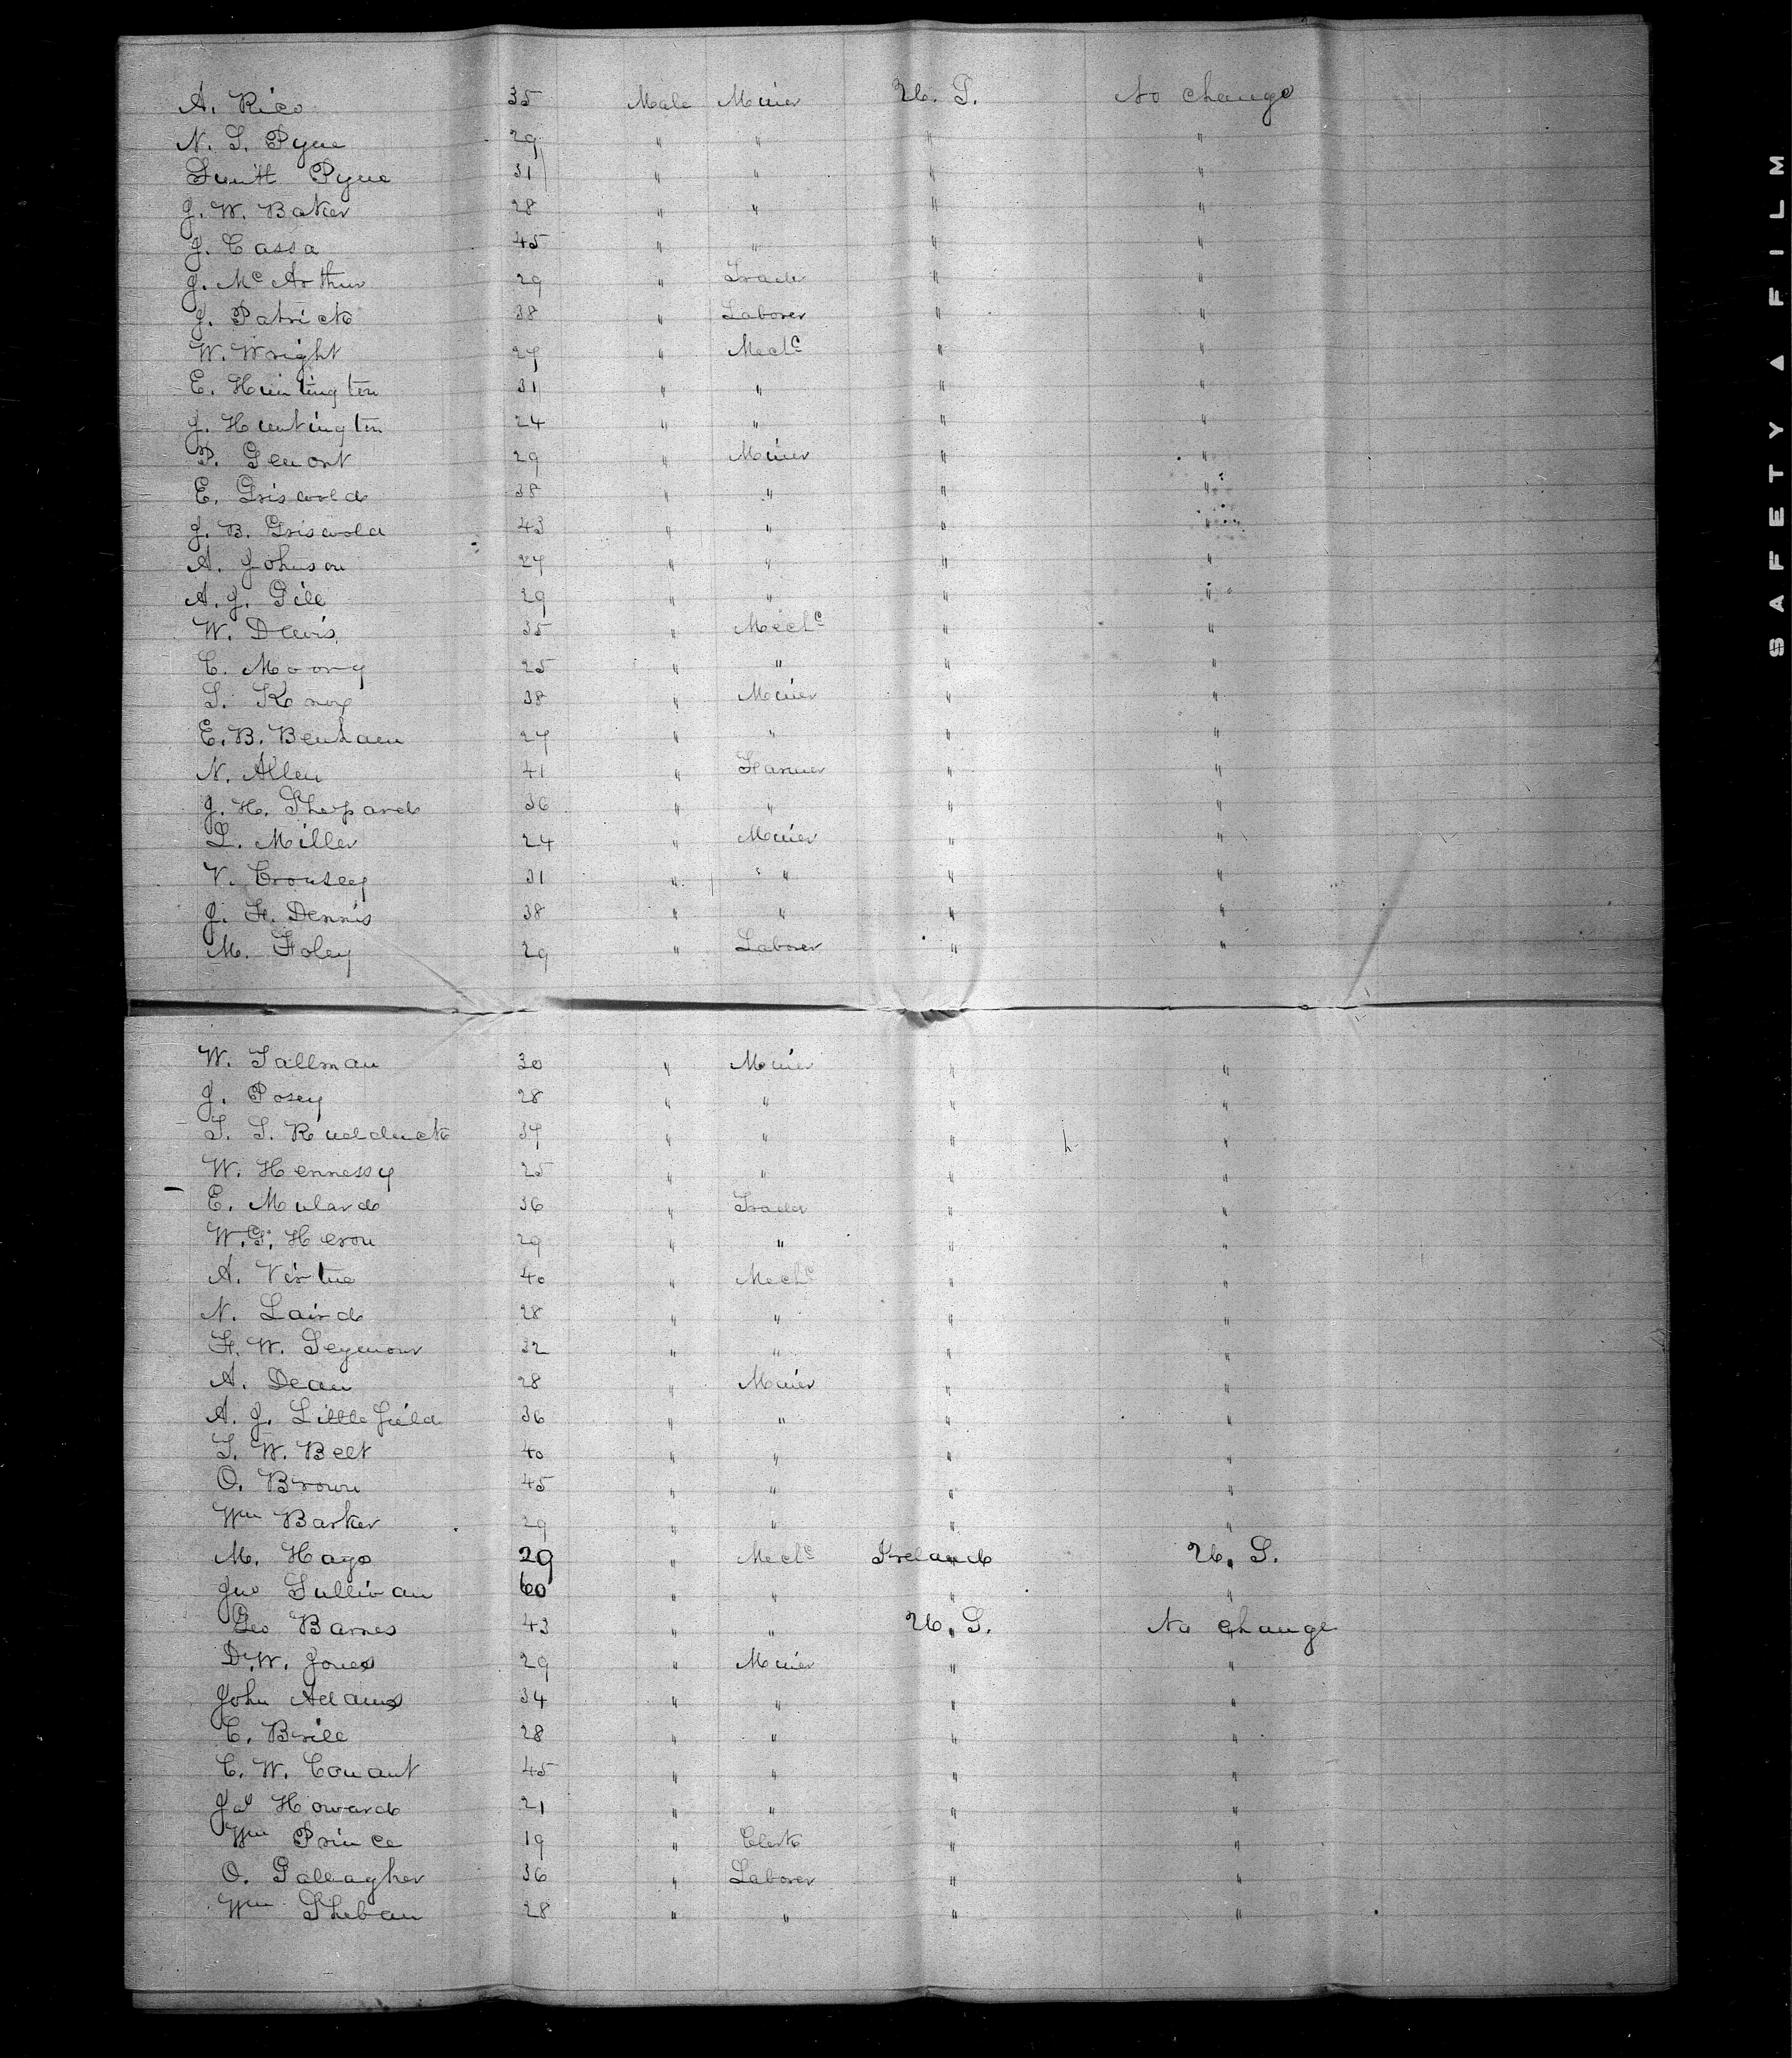 A. Rico 35 Male Miner U. S. No change
N. S. Pyne 29 " " " "
Pyne 31 " " " "
J. W. Baker 28 " " " "
J. Cassa 45 " " " "
J. Mc Arthur 29 " Trader " "
J. Patrick 38 " Laborer " "
W. Wright 27 " Mechc " "
E. Huntington 31 " " " "
J. Huntington 24 " " " "
P. 29 " Miner " "
E. Griswold 38 " " " "
J. B. Griswold 43 " " " "
A. Johnson 27 " " " "
A. J. Gill 29 " " " "
W. Davis 35 " Mechc " "
C. Moony 25 " " " "
S. Knox 38 " Miner " "
E. B. Benham 27 " " " "
N. Allen 41 " Farmer " "
J. H. Shepard 36 " " " "
L. Miller 24 " Miner " "
V. Crousey 31 " " " "
J. F. Dennis 38 " " " "
M. Foley 29 " Laborer " "
W. Tallman 30 " Miner " "
J. Posey 28 " " " "
T. S. Rudduck 37 " " " "
W. Hennessy 25 " " " "
E. Mulard 36 " Trader " "
W. G. Heron 29 " " " "
A. Virtue 40 " Mechc " "
N. Laird 28 " " " "
F. W. Seymour 32 " " " "
A. Dean 28 " Miner " "
A. J. Littlefield 36 " " " "
S. W. Belt 40 " " " "
O. Brown 45 " " " "
Wm Barker 29 " " " "
M. Hays 29 " Mechc Ireland U. S.
Jno Sullivan 60 " " " "
Geo Barnes 43 " " U. S. No change
D. W. Jones 29 " Miner " "
John Adams 34 " " " "
C. Brill 28 " " " "
C. W. Conant 45 " " " "
Jas Howard 21 " " " "
Wm Prince 19 " Clerk " "
O. Gallagher 36 " Laborer " "
Wm Sheban 28 " " " "
SAFETY ▲ FILM